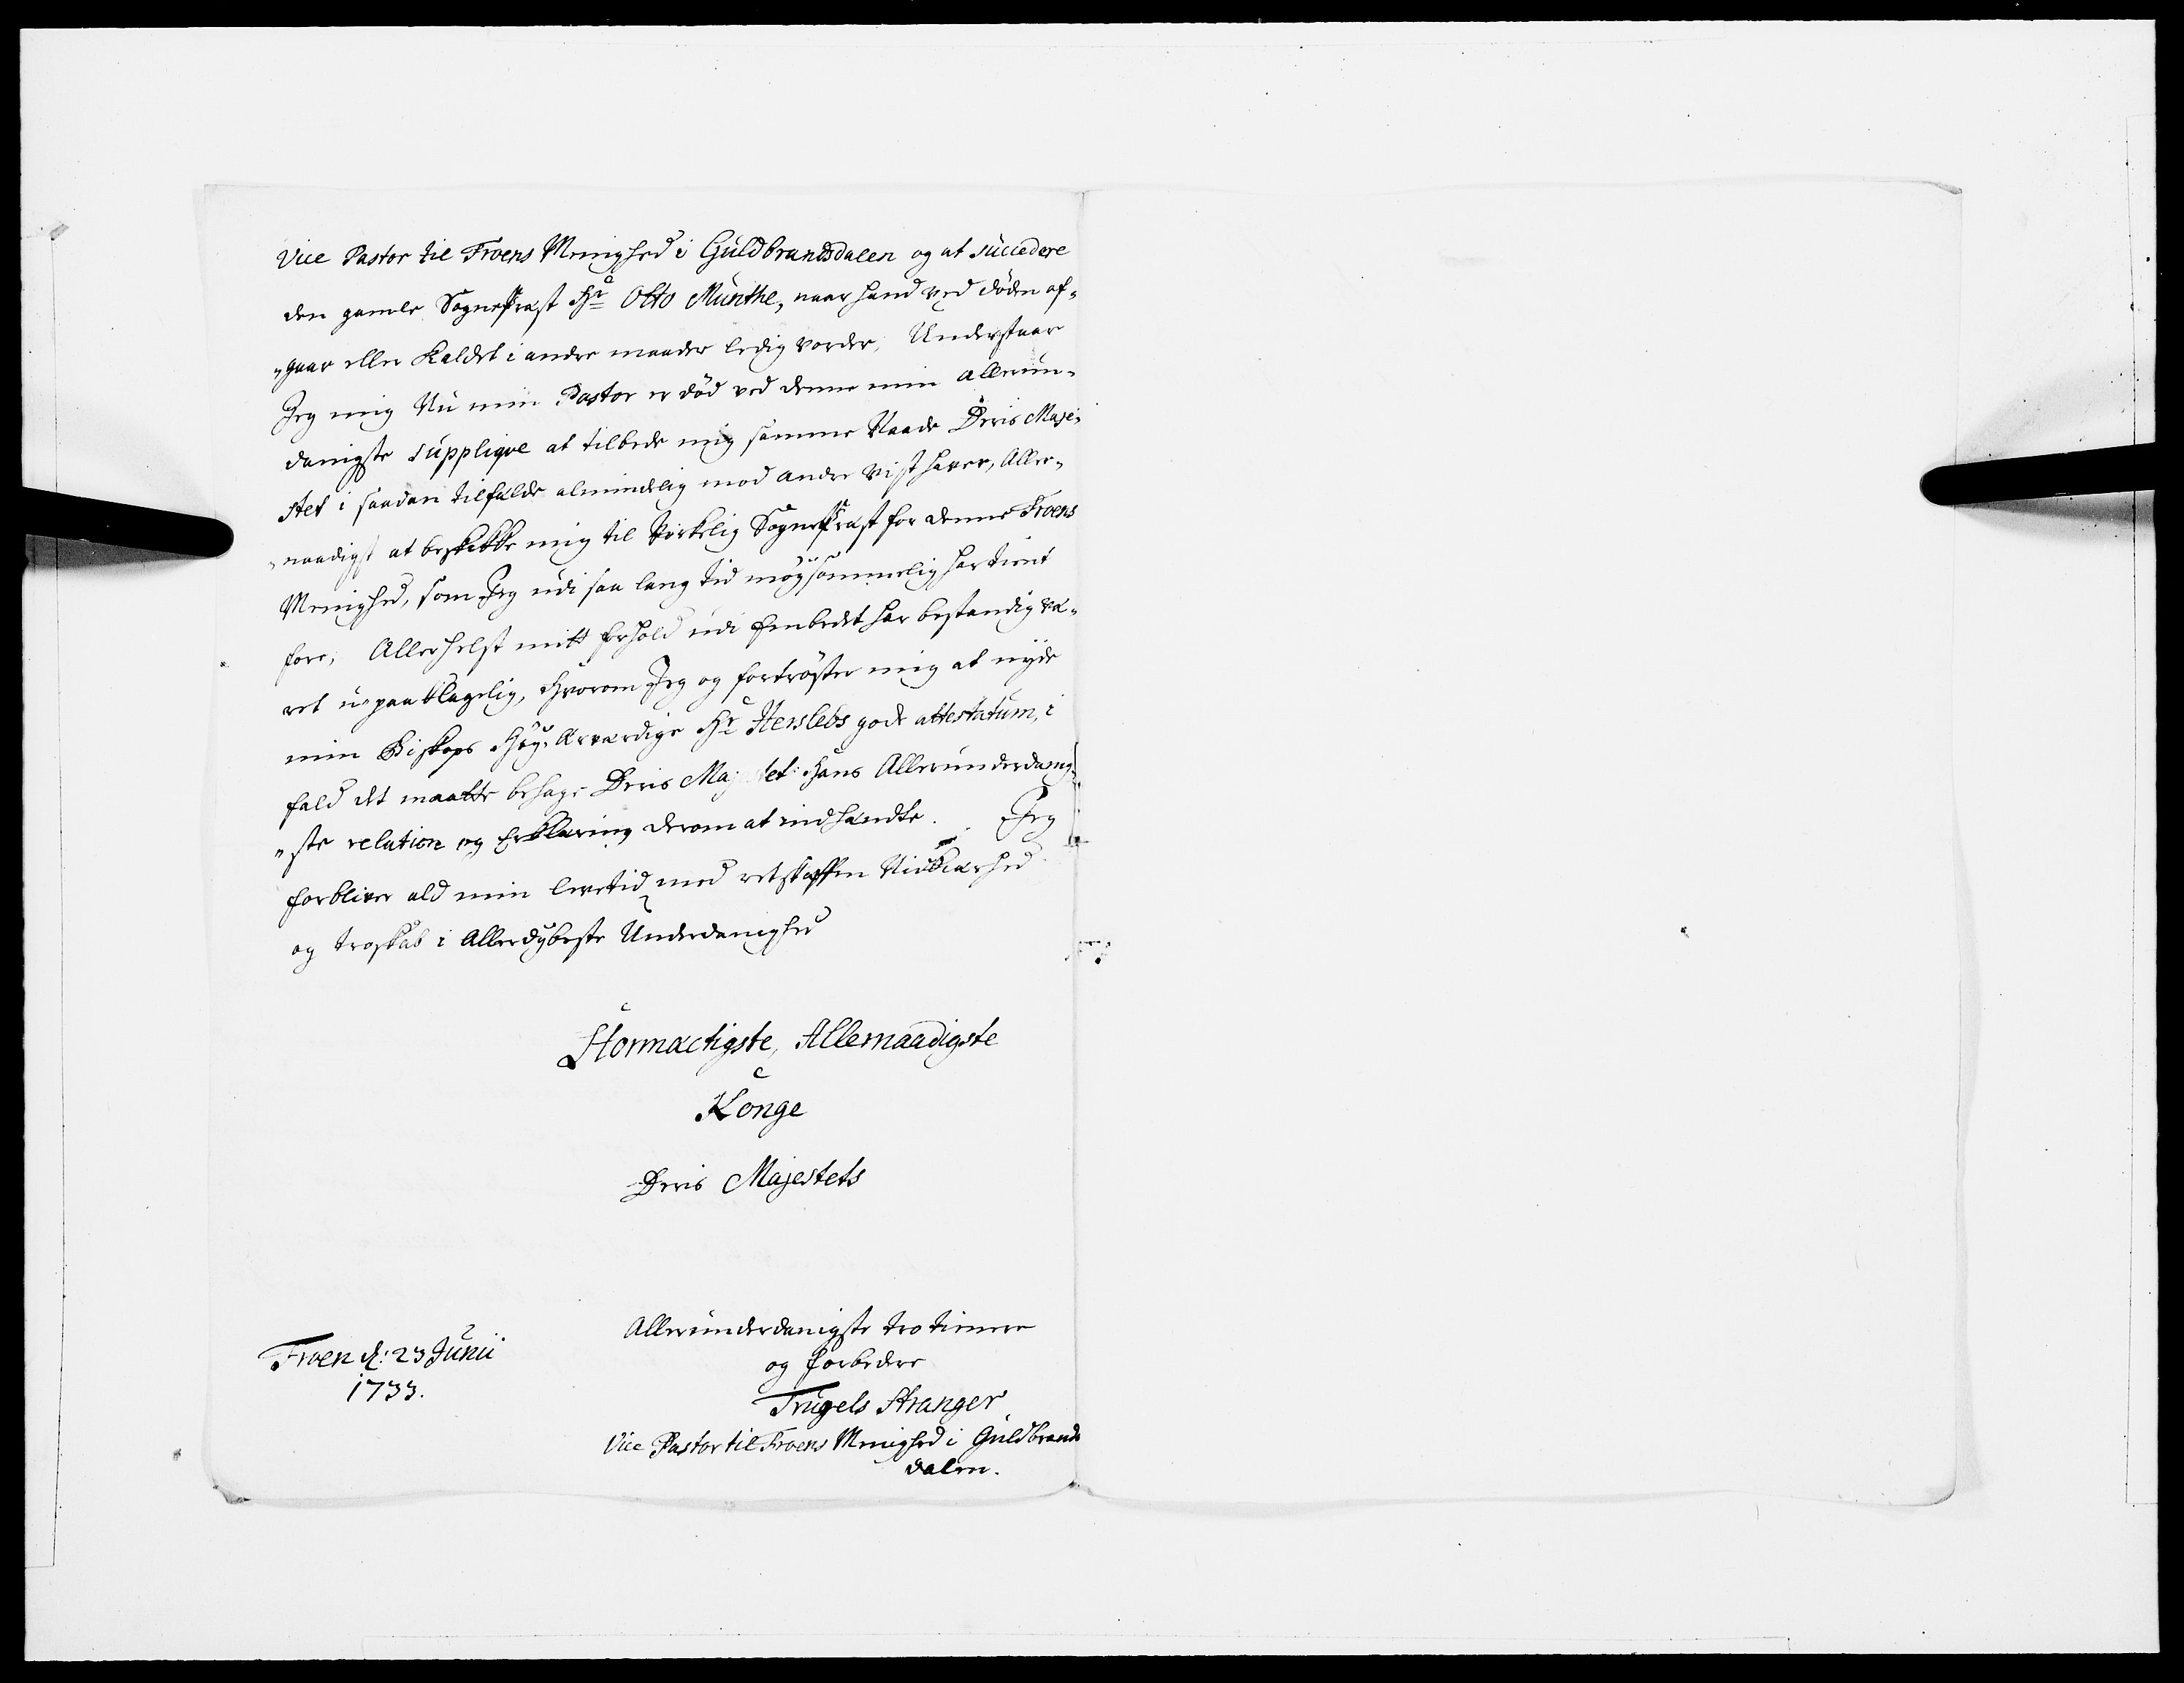 Vice Pastor til Froens Menighed i Guldbrandsdalen og at succedere
den gamle Sognepræst Hr Otto Munthe, naar hand ved döden af-
"gaar eller Kaldet i andre maader ledig vorder; Understaar
Jeg mig Nu min Pastor er död ved denne min allerun-
danigste supplique at tilbede mig samme Naade Deris Maje-
stet i saadan tilfælde almindelig mod andre vist haver, Aller-
"naadigst at beskikke mig til Virkelig Sognepræst for denne Froens
Menighed, som Jeg udi saa lang tid möysommelig har tient
fore; Allerhelst mitt forhold udi Embedet har bestandig væ-
ret u-paaklagelig, hvorom Jeg og fortröster mig at nyde
min Biskops Höy-Ærværdige Hr Herslebs gode attestatum, i
fald det maatte behage Deris Majestet Hans Allerunderdanig-
"ste relation og Erklæring derom at indhændte. Jeg
forbliver ald min levetid med retskaffen Nidkiærhed
og troskab i Allerdybeste Underdanighed
Stormæctigste, Allernaadigste
Konge
Deris Majestets
Allerunderdanigste tro tienere
og forbedere
Froen d: 23 Junii
1733.
Trugels Stranger
Vice Pastor til Froens Menighed i Guldbrands
dalen.